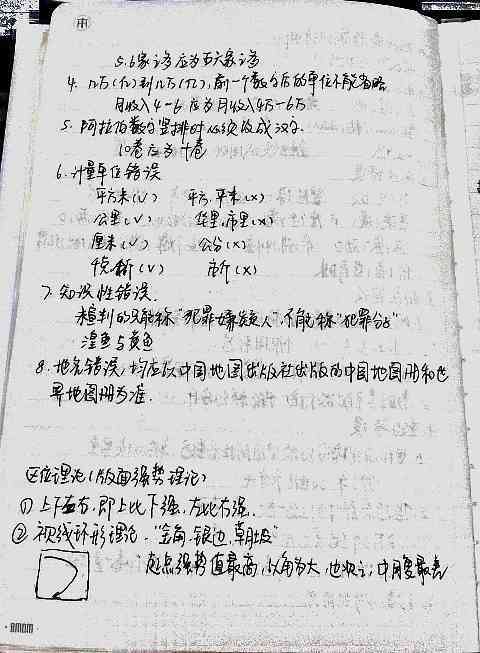 5.6家诊所应为五六家诊所
4. 几万(亿)到几万(亿),前一个数字后的单位不能省略
月收入4-6应为月收入4万-6万
5. 阿拉伯数字竖排时必须改成汉字.
10卷应为十卷
6. 计量单位错误
平方米(√) 平方,平米(×)
公里(√) 华里,市里(×)
厘米(√) 公分(×)
千克,斤(√) 市斤(×)
7. 知识性错误.
未宣判的只能称"犯罪嫌疑人",不能称"犯罪分子"
湟鱼与黄鱼
8. 地名错误,均应以中国地图出版社出版的中国地图册和世
界地图册为准.
区位理论(版面强势理论)
① 上下左右,即上比下强,左比右强.
② 视线环形理论."金角,银边,草肚皮"
起点强势值最高,以角为大,边次之,中腹最差